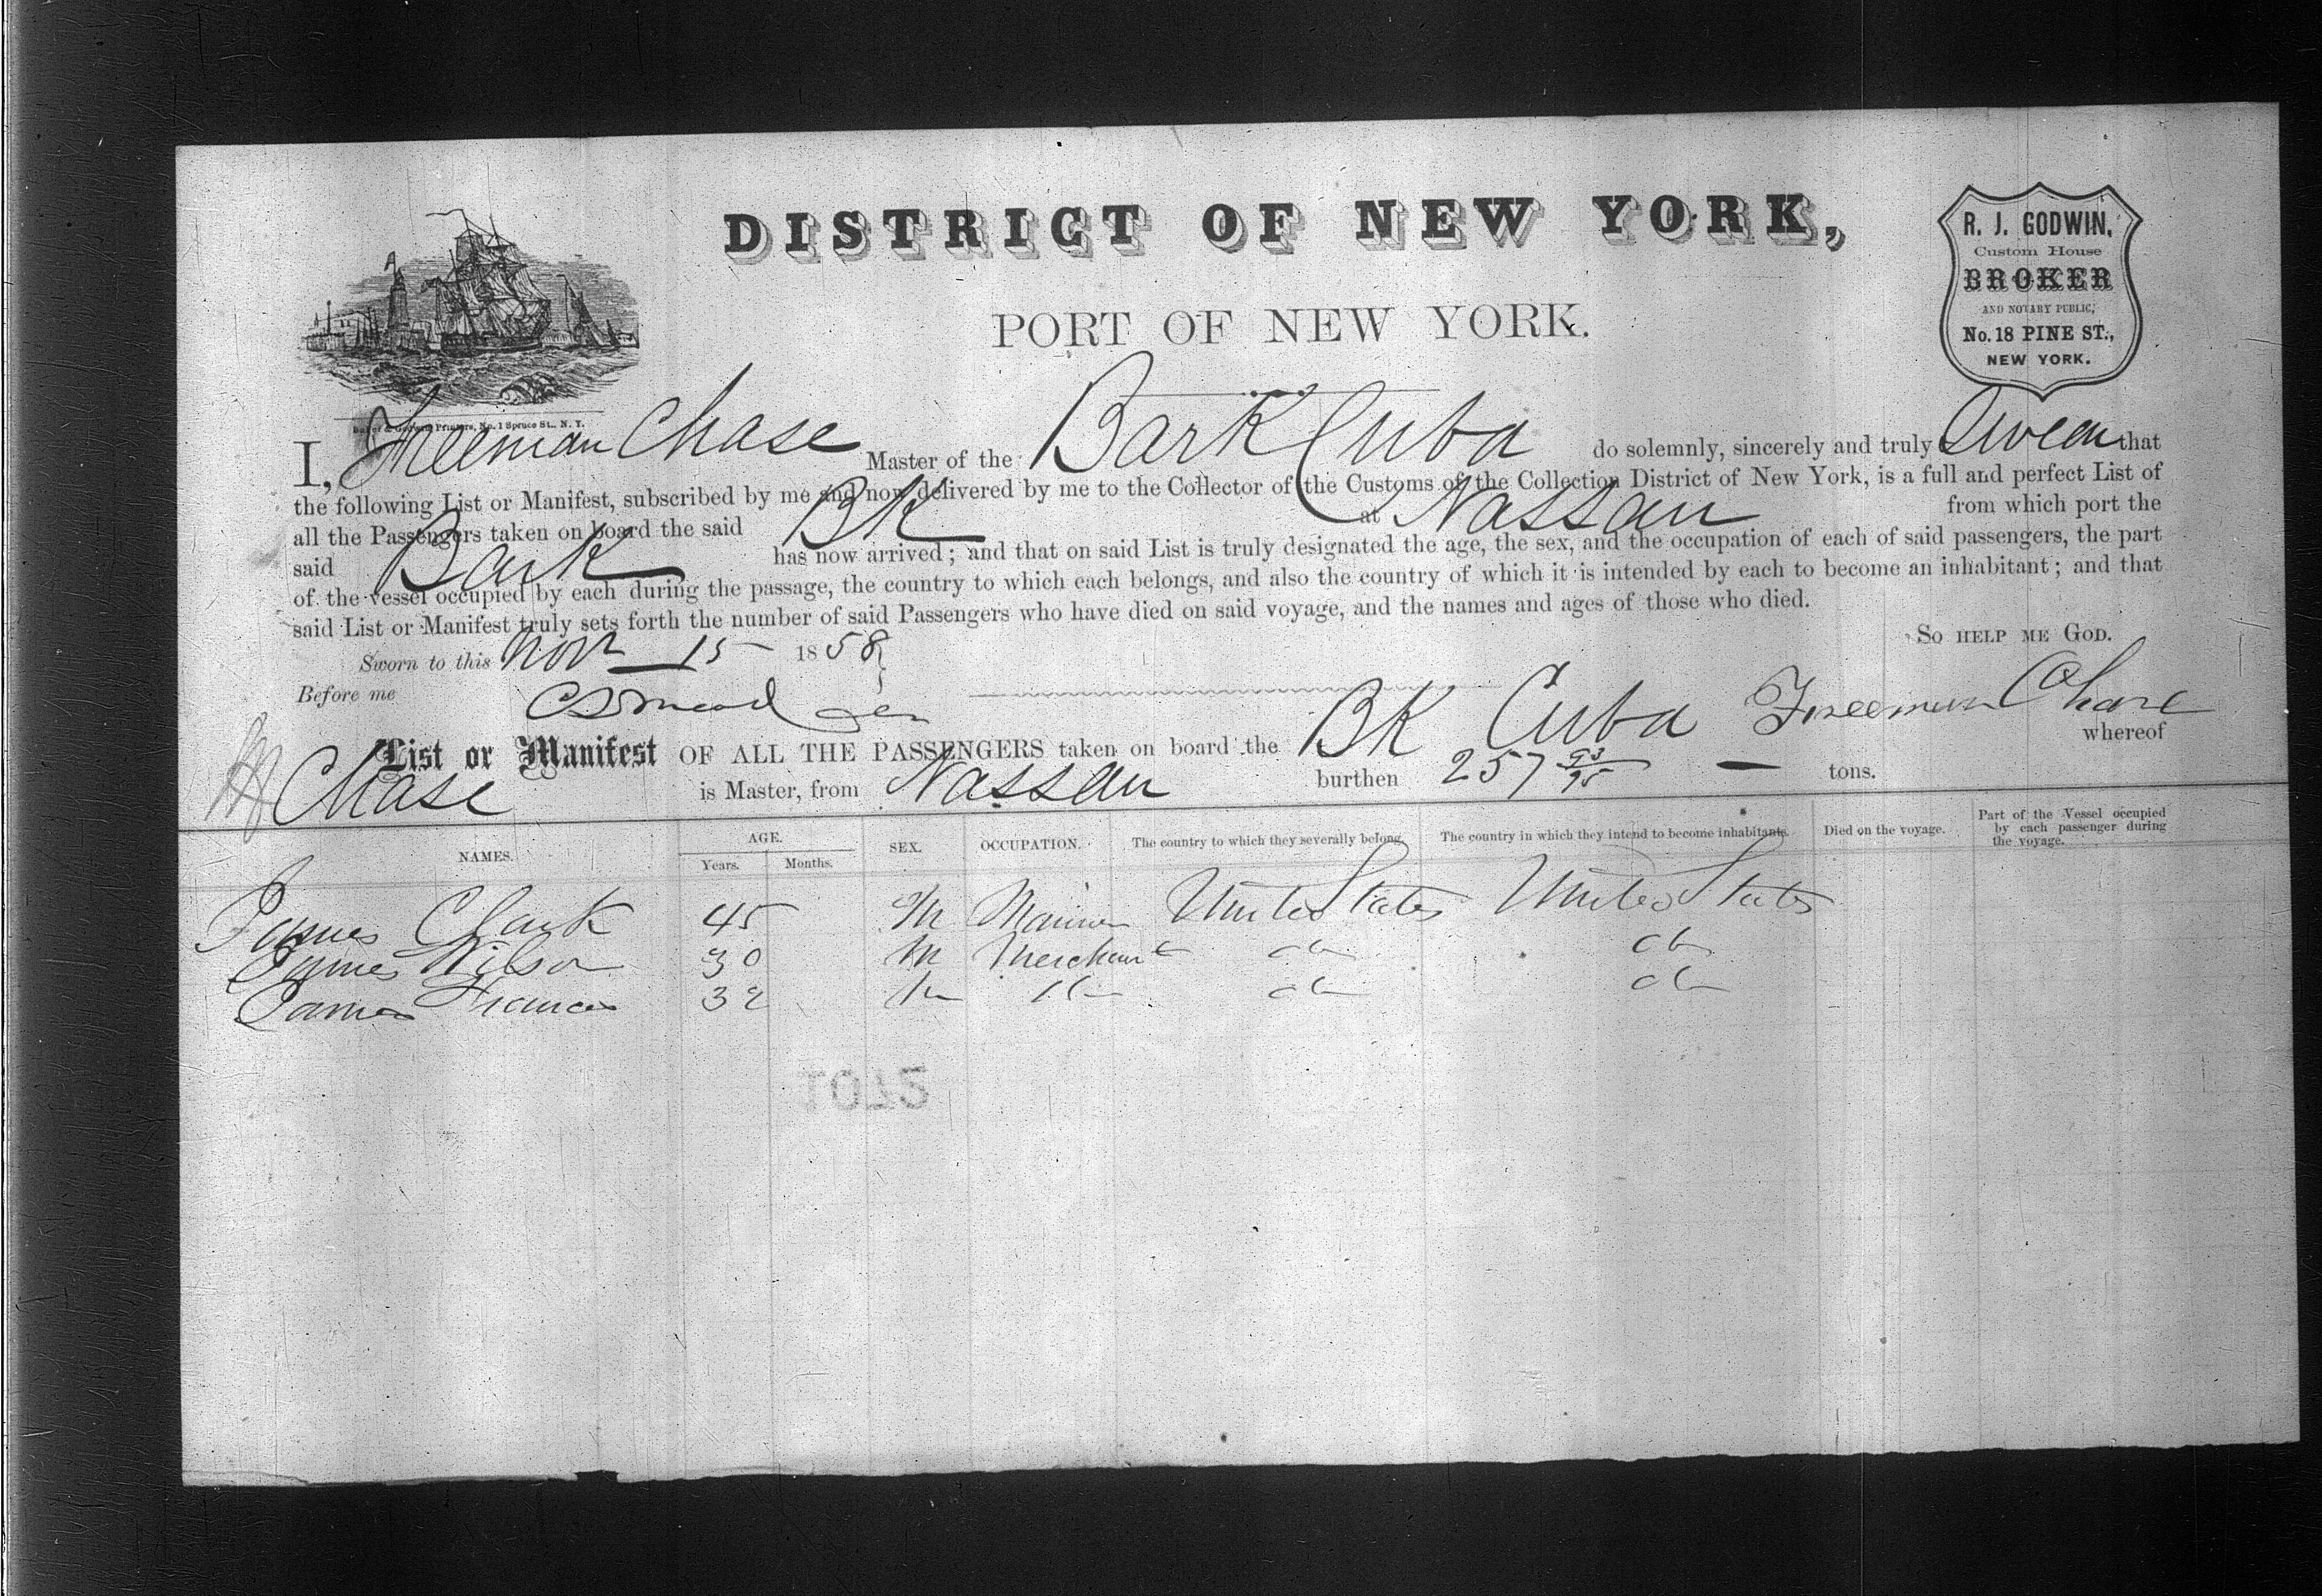 DISTRICT OF NEW YORK,
PORT OF NEW YORK.
R. J. GODWIN,
Custom House
BROKER
AND NOTARY PUBLIC,
No. 18 PINE ST.,
NEW YORK.
Baker & Godwin, Printers, No. 1 Spruce St., N. Y.
I, Freeman Chase Master of the Bark Cuba do solemnly, sincerely and truly Swear that
the following List or Manifest, subscribed by me and now delivered by me to the Collector of the Customs of the Collection District of New York, is a full and perfect List of
all the Passengers taken on board the said BK at Nassau from which port the
said Bark has now arrived; and that on said List is truly designated the age, the sex, and the occupation of each of said passengers, the part
of the vessel occupied by each during the passage, the country to which each belongs, and also the country of which it is intended by each to become an inhabitant; and that
said List or Manifest truly sets forth the number of said Passengers who have died on said voyage, and the names and ages of those who died.
So help me God.
Sworn to this Novr 15 1858
Before me
Freeman Chase
List or Manifest OF ALL THE PASSENGERS taken on board the BK Cuba whereof
Chase is Master, from Nassau burthen 257 93/95 tons.
NAMES. AGE. SEX. OCCUPATION. The country to which they severally belong. The country in which they intend to become inhabitants. Died on the voyage. Part of the Vessel occupied by each passenger during the voyage.
Years. Months.
James Clark 45 M Mariner United States United States
James Wilson 30 M Merchant do do
James Frances 32 M do do do